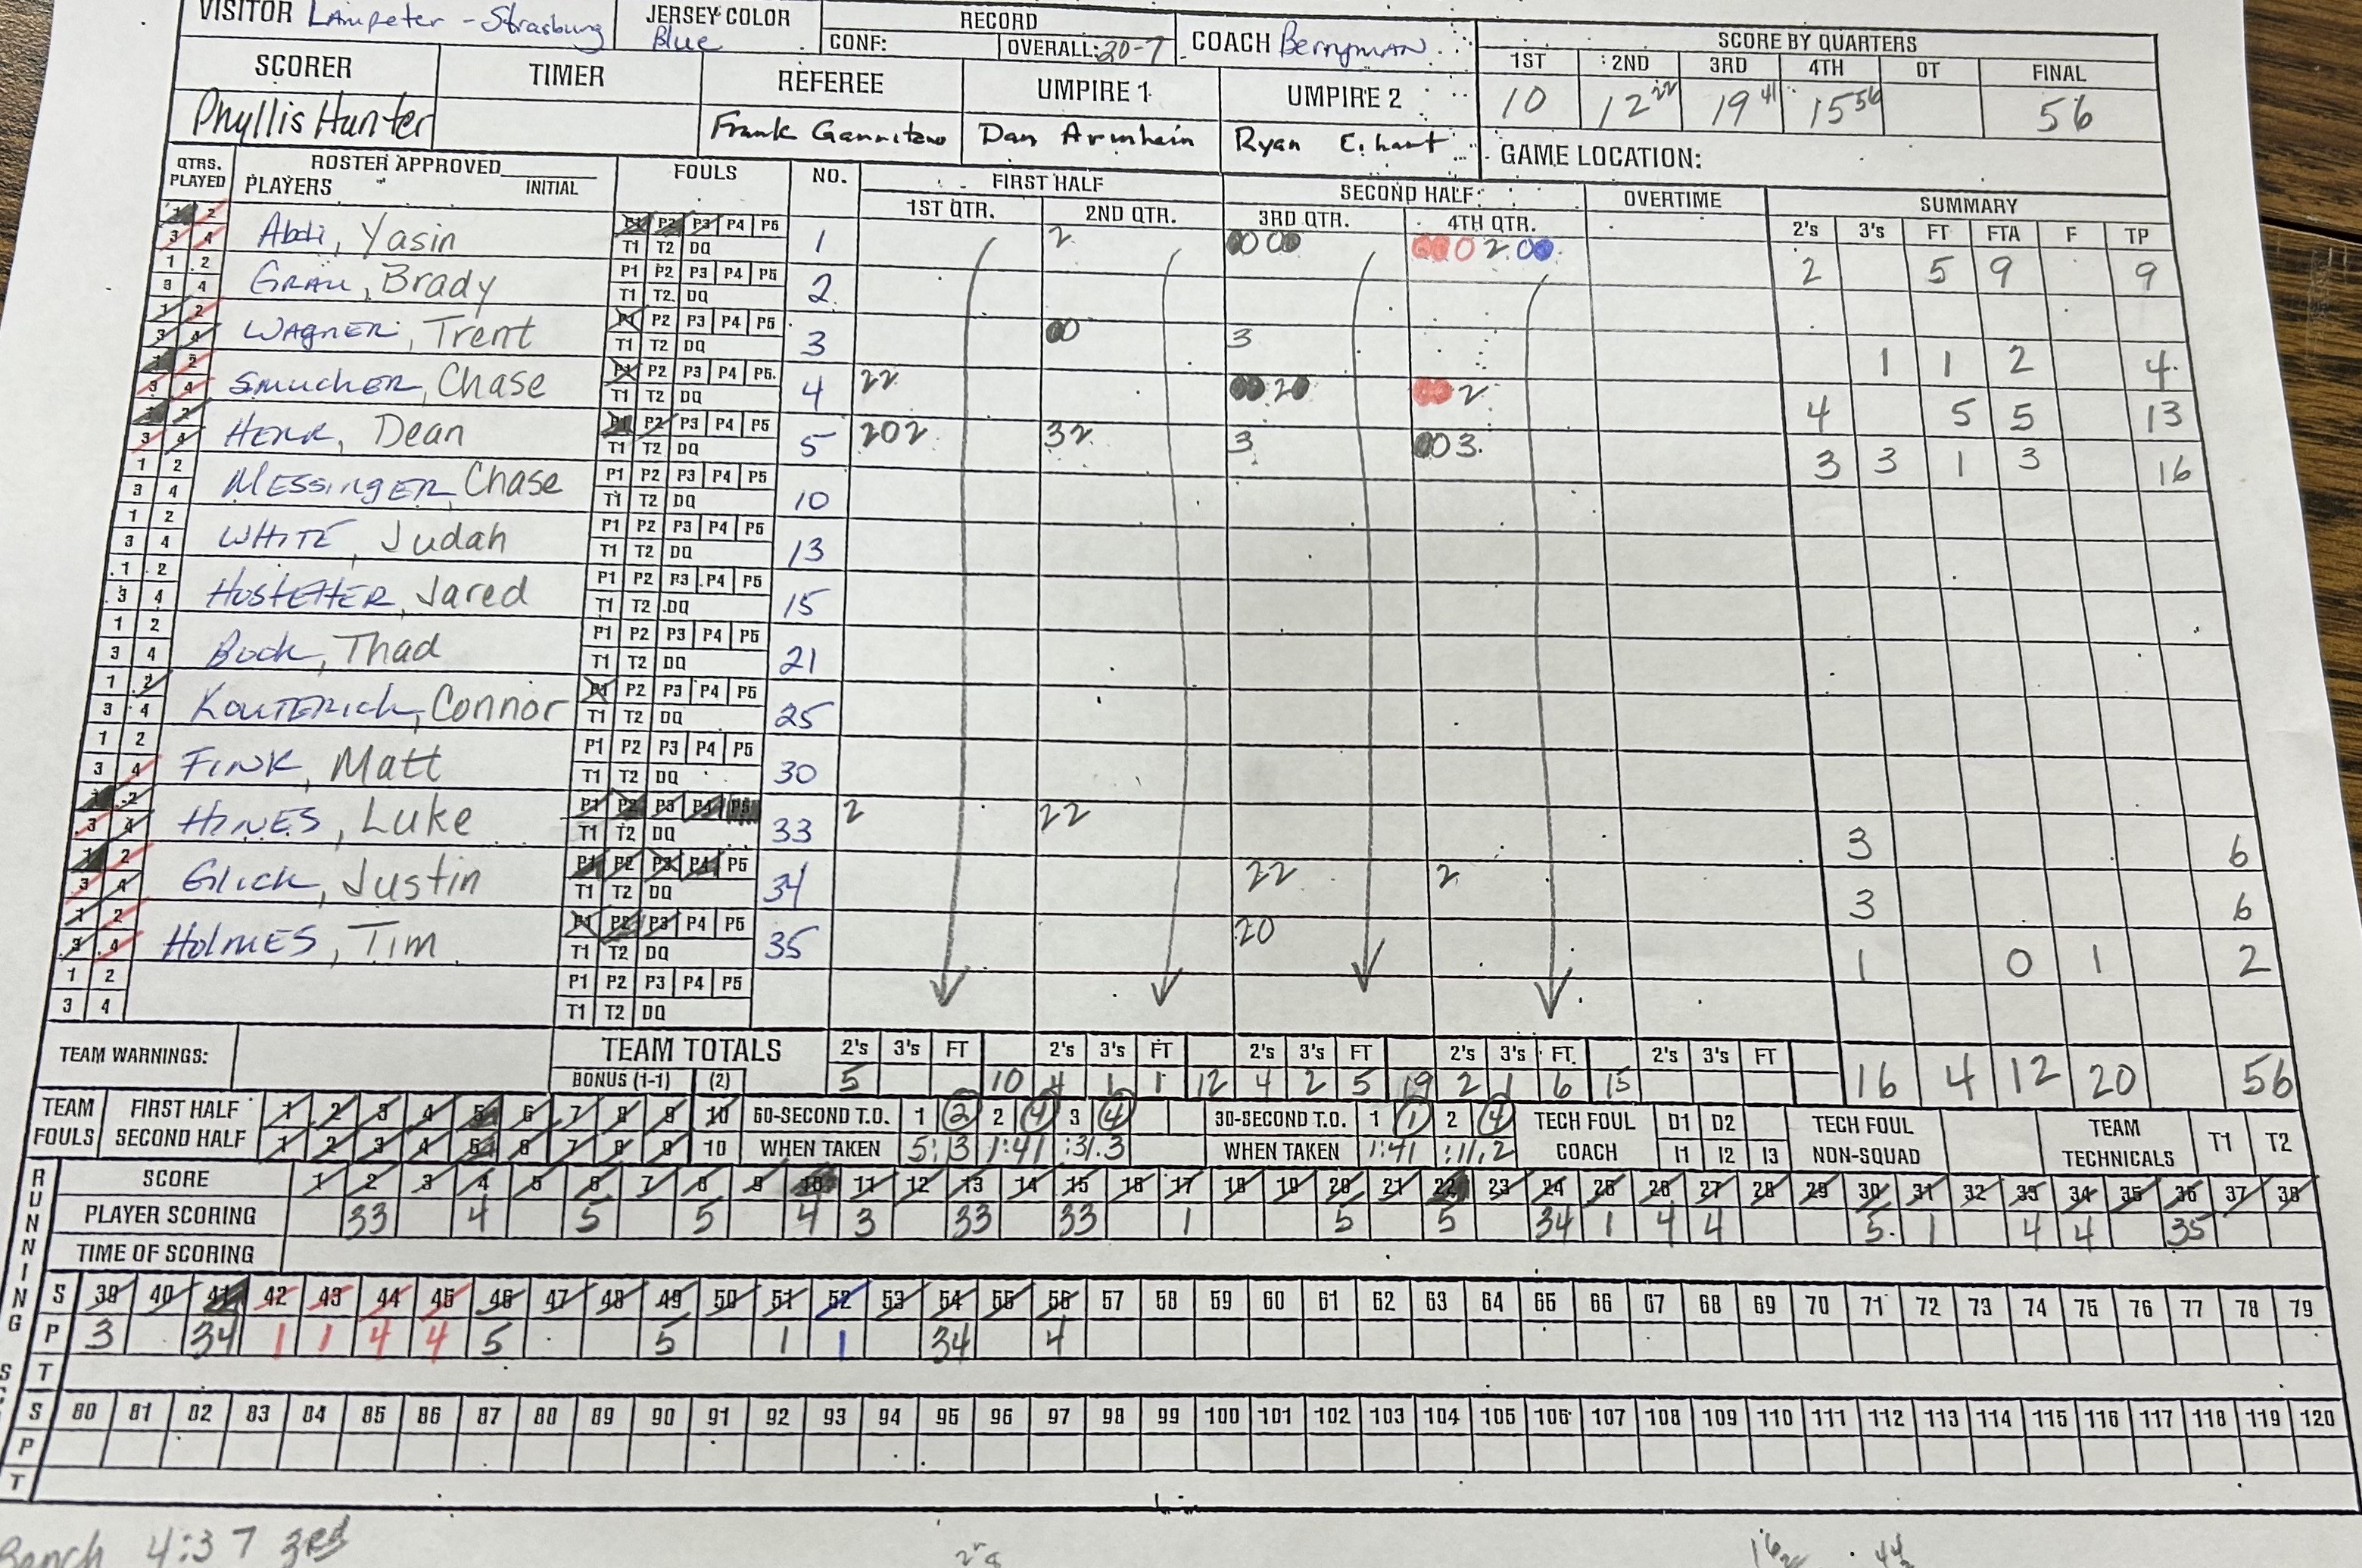 VISITOR Lampeter - Strasburg JERSEY COLOR Blue RECORD CONF: OVERALL: 20-7 COACH Berryman SCORE BY QUARTERS
1ST 2ND 3RD 4TH OT FINAL
10 12 22 19 41 15 56 56
SCORER TIMER REFEREE UMPIRE 1 UMPIRE 2
Phyllis Hunter Frank Dan Ryan GAME LOCATION:
QTRS. PLAYED ROSTER APPROVED INITIAL PLAYERS FOULS NO. FIRST HALF SECOND HALF OVERTIME SUMMARY
1ST QTR. 2ND QTR. 3RD QTR. 4TH QTR. 2's 3's FT FTA F TP
1 2 3 4 Abdi, Yasin P1 P2 P3 P4 P5 T1 T2 DQ 1 2 0000 000200 2 5 9 9
1 2 3 4 Brady P1 P2 P3 P4 P5 T1 T2 DQ 2
1 2 3 4 WAGNER, Trent P1 P2 P3 P4 P5 T1 T2 DQ 3 00 3 1 1 2 4
1 2 3 4 SMUCKER, Chase P1 P2 P3 P4 P5 T1 T2 DQ 4 22 0020 002 4 5 5 13
1 2 3 4 HERR, Dean P1 P2 P3 P4 P5 T1 T2 DQ 5 202 32 3 003 3 3 1 3 16
1 2 3 4 MESSINGER, Chase P1 P2 P3 P4 P5 T1 T2 DQ 10
1 2 3 4 WHITE, Judah P1 P2 P3 P4 P5 T1 T2 DQ 13
1 2 3 4 HOSTETTER, Jared P1 P2 P3 P4 P5 T1 T2 DQ 15
1 2 3 4 Bock, Thad P1 P2 P3 P4 P5 T1 T2 DQ 21
1 2 3 4 KOUTERICK, Connor P1 P2 P3 P4 P5 T1 T2 DQ 25
1 2 3 4 FINK, Matt P1 P2 P3 P4 P5 T1 T2 DQ 30
1 2 3 4 HINES, Luke P1 P2 P3 P4 P5 T1 T2 DQ 33 2 22 3 6
1 2 3 4 Glick, Justin P1 P2 P3 P4 P5 T1 T2 DQ 34 22 2 3 6
1 2 3 4 HolmES, Tim P1 P2 P3 P4 P5 T1 T2 DQ 35 20 1 0 1 2
1 2 3 4 P1 P2 P3 P4 P5 T1 T2 DQ
TEAM WARNINGS: TEAM TOTALS 2's 3's FT 2's 3's FT 2's 3's FT 2's 3's FT. 2's 3's FT
BONUS (1-1) (2) 5 10 4 1 1 12 4 2 5 19 2 1 6 15 16 4 12 20 56
TEAM FOULS FIRST HALF 1 2 3 4 5 6 7 8 9 10 60-SECOND T.O. 1 2 2 4 3 4 30-SECOND T.O. 1 1 2 4 TECH FOUL COACH D1 D2 TECH FOUL NON-SQUAD TEAM TECHNICALS T1 T2
SECOND HALF 1 2 3 4 5 6 7 8 9 10 WHEN TAKEN 5:13 1:41 :31.3 WHEN TAKEN 1:41 :11.2 I1 I2 I3
RUNNING SC
SCORE 1 2 3 4 5 6 7 8 9 10 11 12 13 14 15 16 17 18 19 20 21 22 23 24 25 26 27 28 29 30 31 32 33 34 35 36 37 38
PLAYER SCORING 33 4 5 5 4 3 33 33 1 5 5 34 1 4 4 5 1 4 4 35
TIME OF SCORING
S 39 40 41 42 43 44 45 46 47 48 49 50 51 52 53 54 55 56 57 58 59 60 61 62 63 64 65 66 67 68 69 70 71 72 73 74 75 76 77 78 79
P 3 34 1 1 4 4 5 5 1 1 34 4
T
S 80 81 82 83 84 85 86 87 88 89 90 91 92 93 94 95 96 97 98 99 100 101 102 103 104 105 106 107 108 109 110 111 112 113 114 115 116 117 118 119 120
P
T
Bench 4:37 3rd